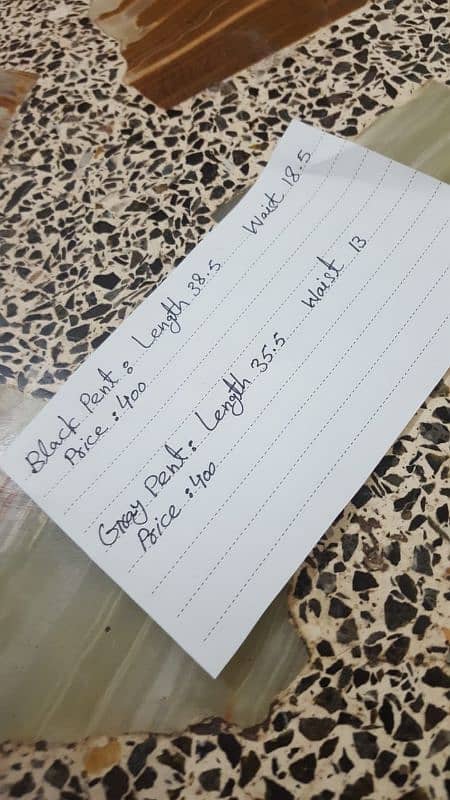 Black Pent: Length 38.5 Waist 18.5
Price: 400
Gray Pent: Length 35.5 Waist 13
Price: 400